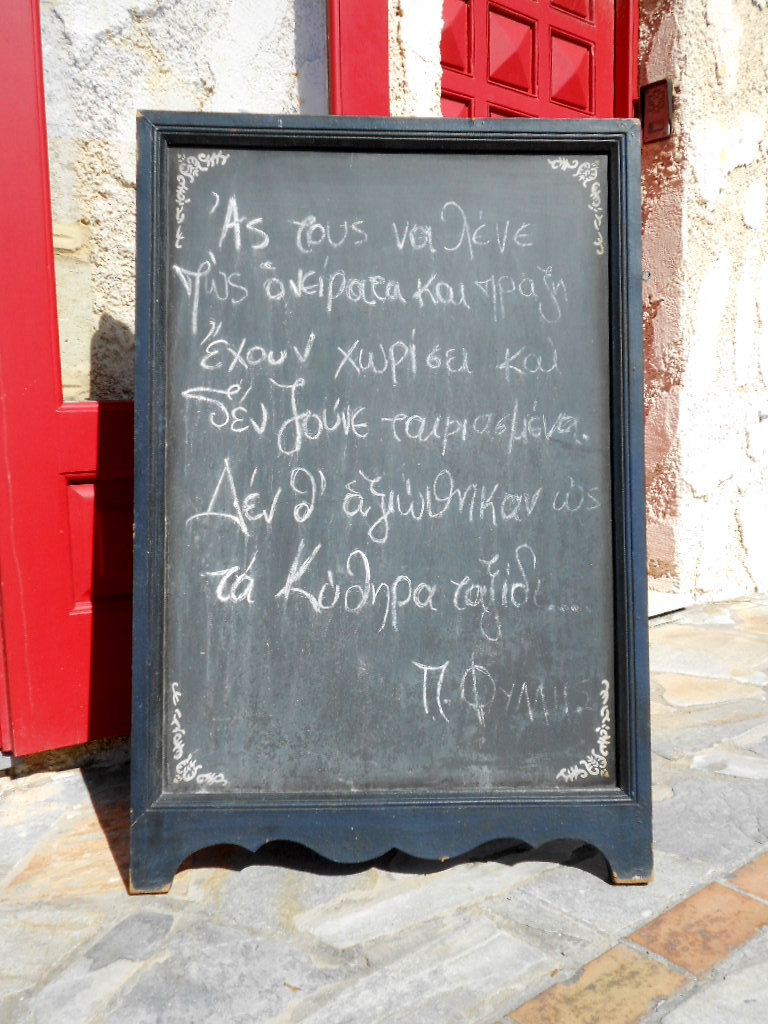 Ἄς τους να λένε
πὼς ὀνείρατα και πράξη
Ἔχουν χωρίσει και
δέν ζούνε ταιριασμένα.
Δέν θ' ἀξιώθηκαν ὡς
τά Κύθηρα ταξίδι.....
Π. Φύλλης